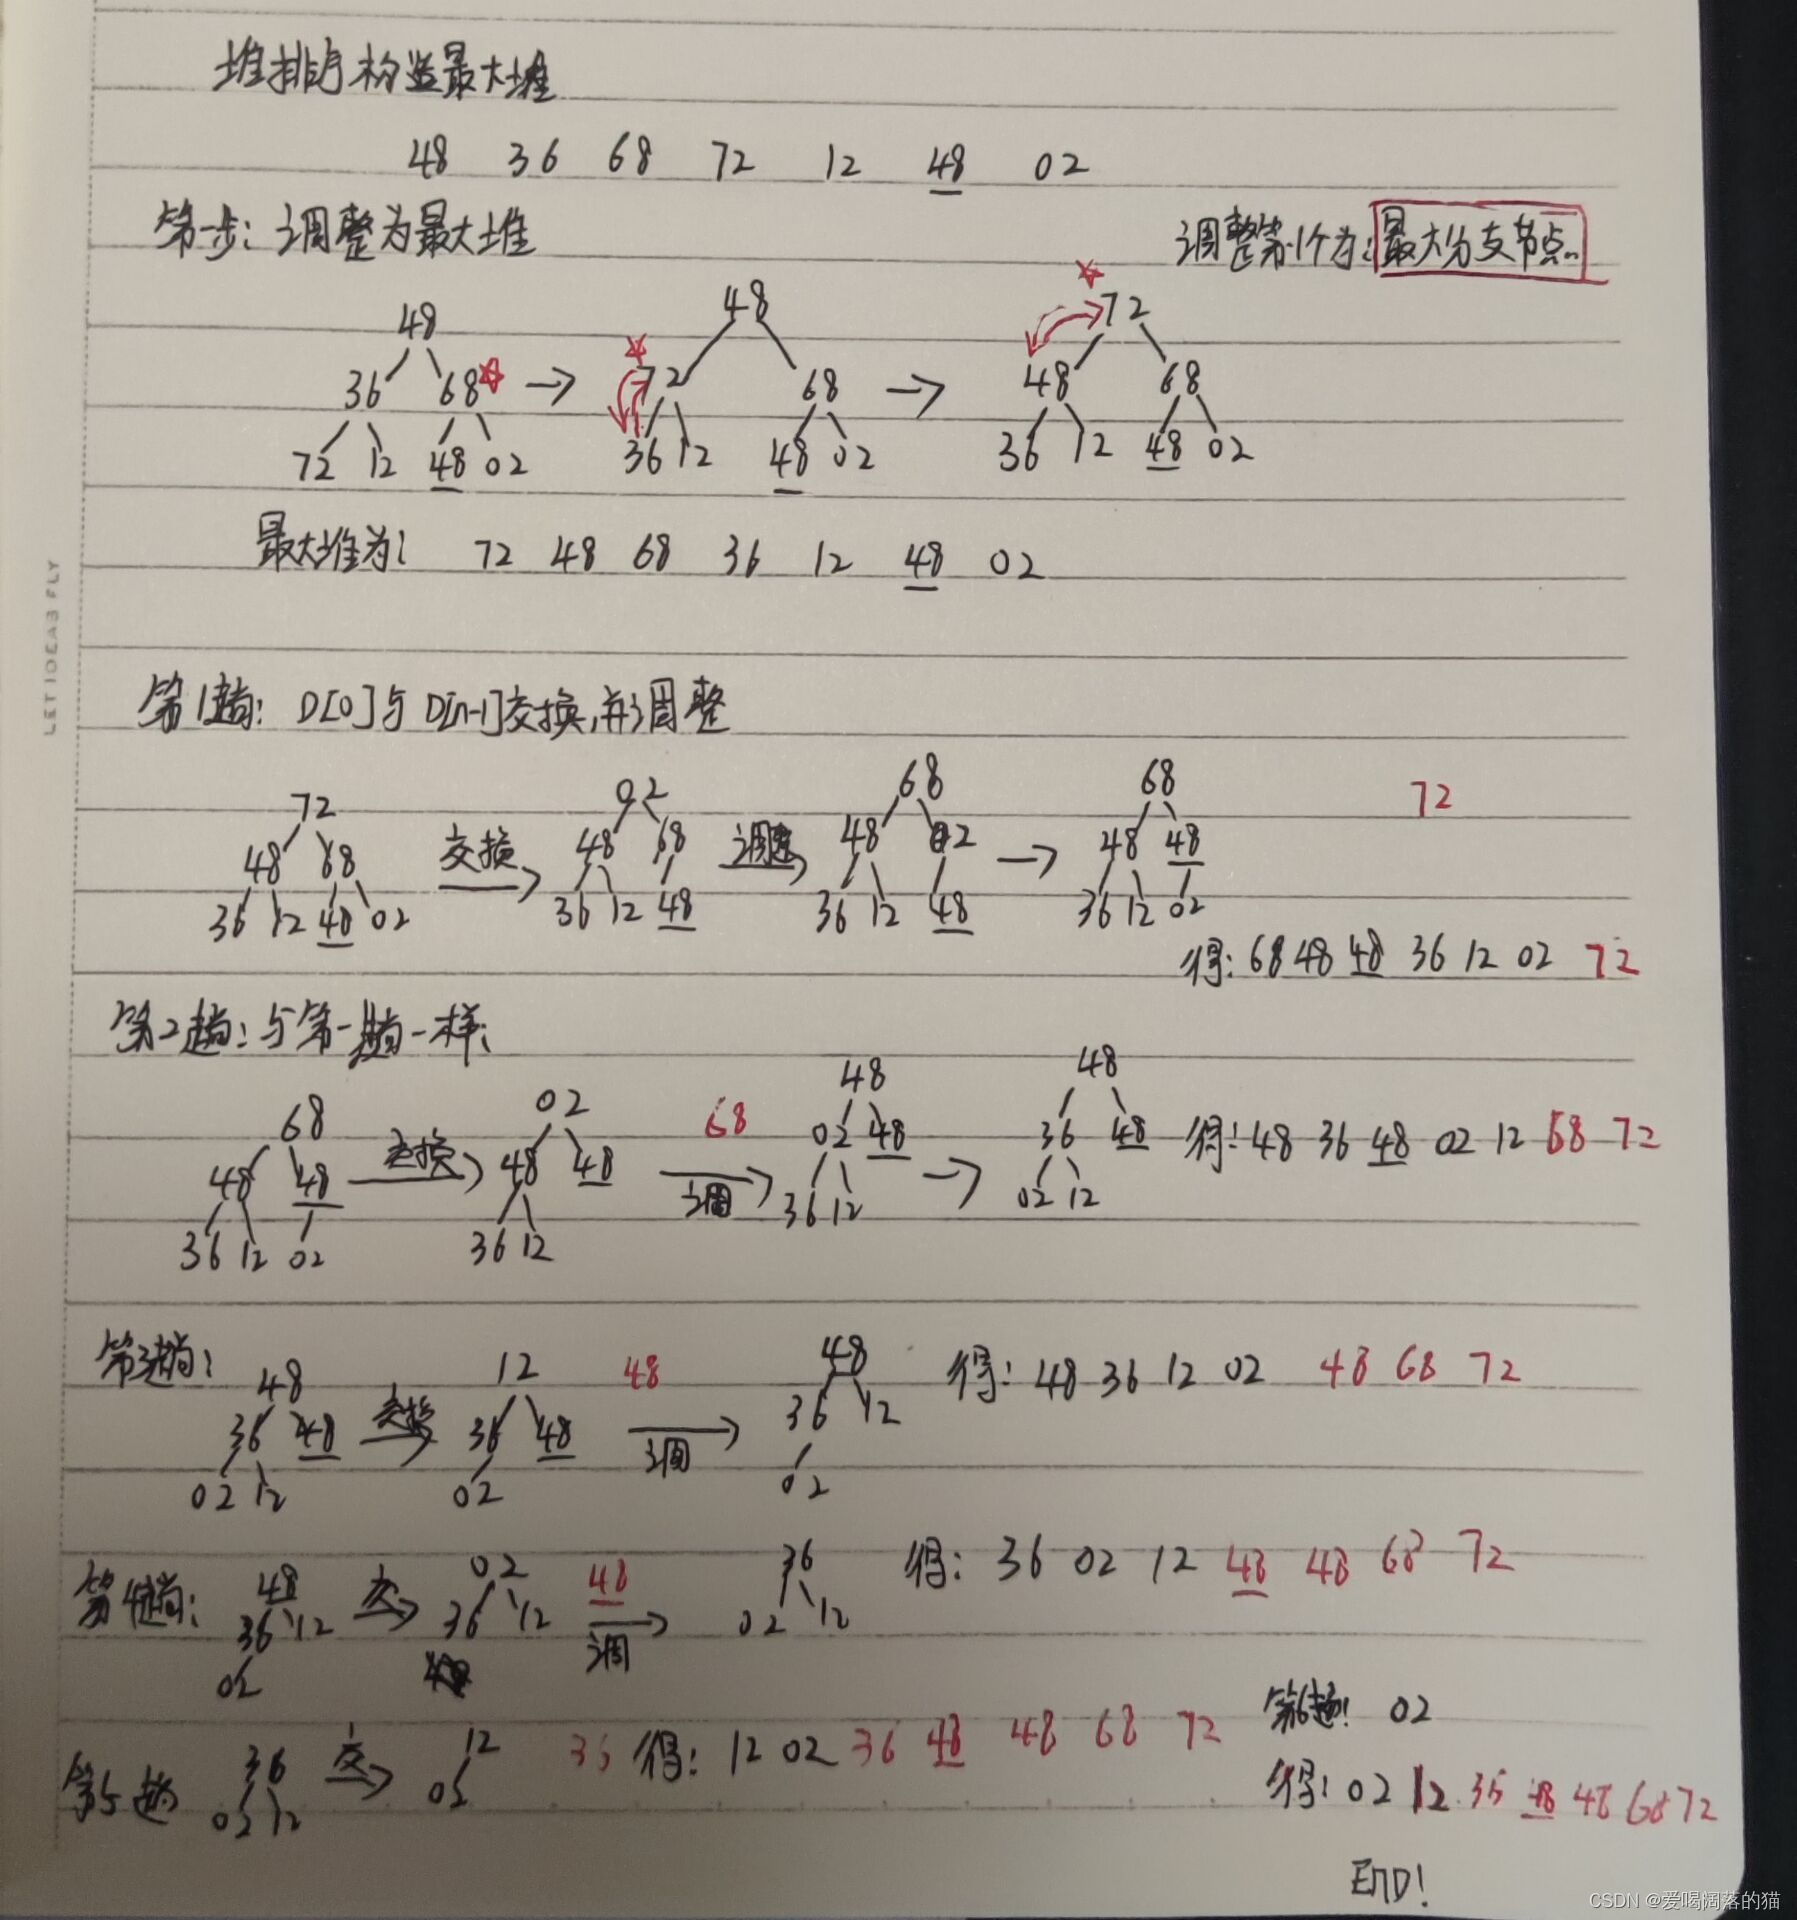 堆排序构造最大堆
48 36 68 72 12 48 02
第一步: 调整为最大堆
调整第1个为: 最大分支节点
48
36 68 →
72 12 48 02
48
72 68 →
36 12 48 02
72
48 68
36 12 48 02
最大堆为: 72 48 68 36 12 48 02
LET IDEAS FLY
第1趟: D[0]与D[n-1]交换,并调整
72
48 68
36 12 48 02
交换
02
48 68
36 12 48
调整
68
48 02
36 12 48
→
68
48 48
36 12 02
72
得: 68 48 48 36 12 02 72
第2趟: 与第一趟一样:
68
48 48
36 12 02
交换
02
48 48
36 12
68
调
48
02 48
36 12
→
48
36 48
02 12
得: 48 36 48 02 12 68 72
第3趟:
48
36 48
02 12
交换
12
36 48
02
48
调
48
36 12
02
得: 48 36 12 02 48 68 72
第4趟:
48
36 12
02
交
02
36 12
48
调
36
02 12
得: 36 02 12 48 48 68 72
第5趟
36
02 12
交
12
02
36
得: 12 02 36 48 48 68 72
第6趟: 02
得: 02 12 36 48 48 68 72
END!
CSDN @爱喝阔落的猫